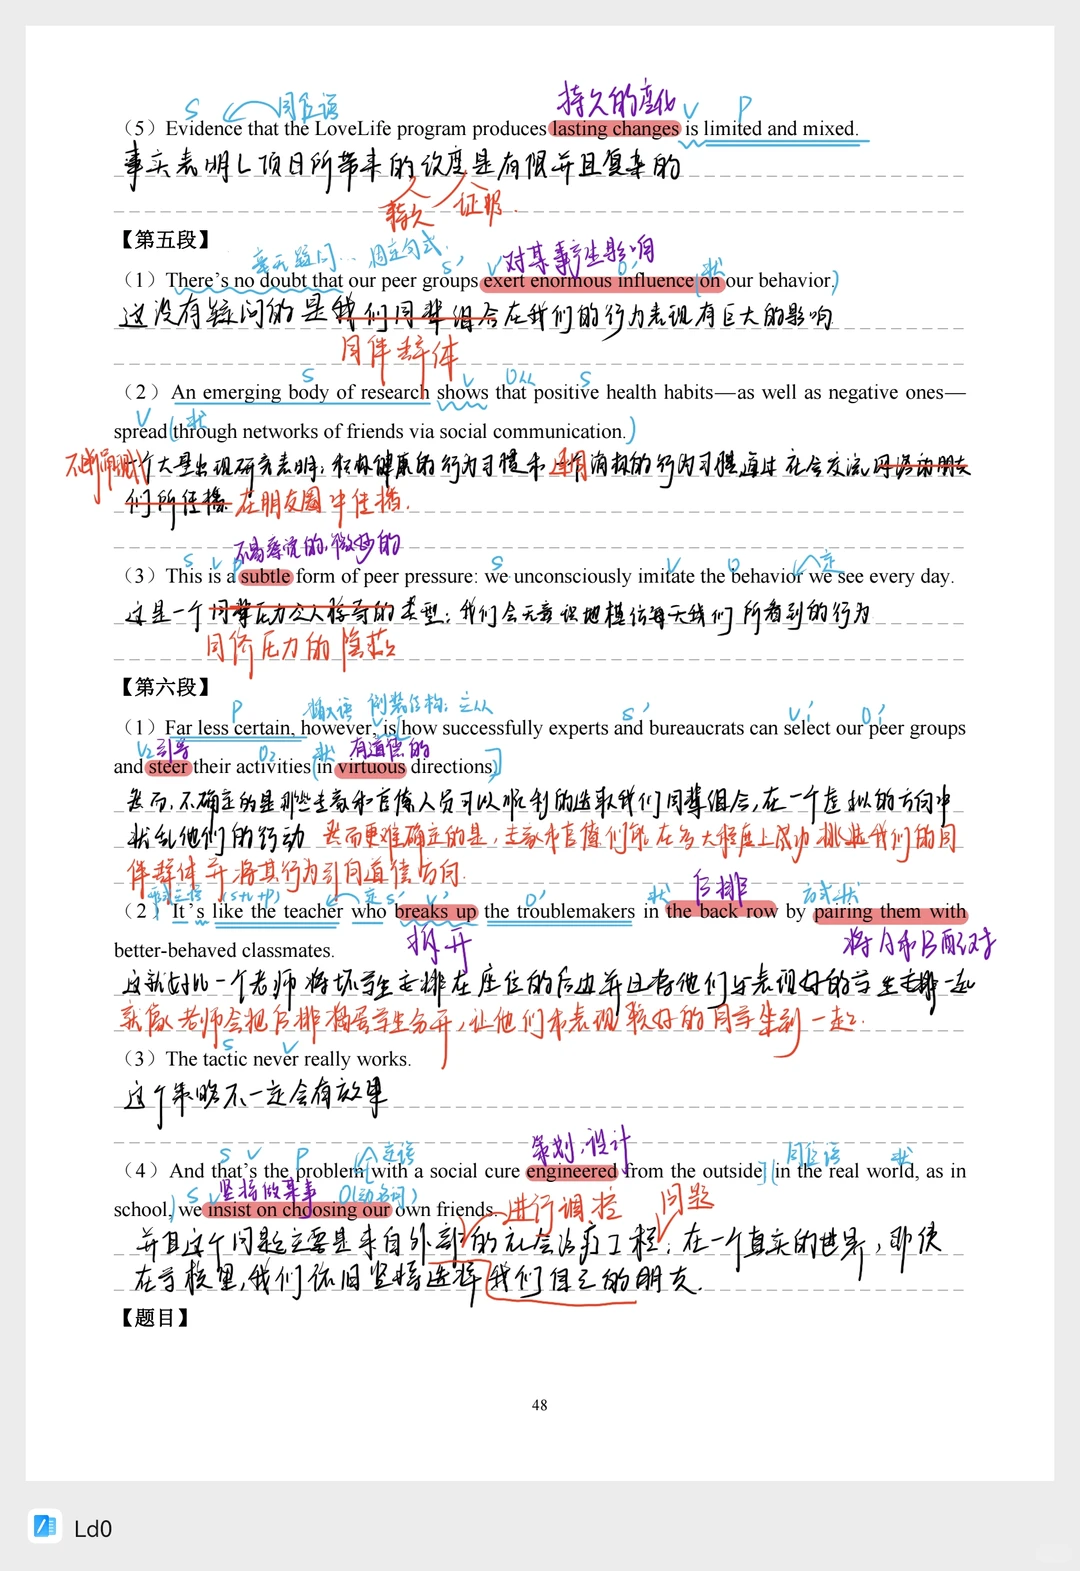 持久的变化
S 同位语 V P
（5）Evidence that the LoveLife program produces lasting changes is limited and mixed.
事实表明L项目所带来的 是有限并且复杂的
持久 证明.
【第五段】
毫无疑问… 固定句式. S' V' 对某事产生影响 O' 状
（1）There's no doubt that our peer groups exert enormous influence on our behavior.)
这没有疑问的是我们同辈组合在我们的行为表现有巨大的影响
同伴群体
S V O从 S
（2）An emerging body of research shows that positive health habits—as well as negative ones—
V 状
spread (through networks of friends via social communication.)
个大量出现研究表明，积极健康的行为习惯和 消极的行为习惯通过社会交流网络和朋友
们所传播 在朋友圈中传播.
不易察觉的，微妙的
S V P S V O 定
（3）This is a subtle form of peer pressure: we unconsciously imitate the behavior we see every day.
这是一个同辈压力 的类型；我们会无意识地模仿每天我们所看到的行为
同侪压力的隐蔽
【第六段】
P 插入语 倒装结构：主从 S' V1' O1'
（1）Far less certain, however, is [how successfully experts and bureaucrats can select our peer groups
V2 引导 O2 状 有道德的
and steer their activities (in virtuous directions)]
然而，不确定的是那些专家和官僚人员可以顺利的选取我们同辈组合，在一个虚拟的方向中
扰乱他们的行动 然而更难确定的是，专家和官僚们能在多大程度上成功挑选我们的同
伴群体并将其行为引向道德方向.
形式主语 (S+V+P) 定 S' V' O' 状 后排 方式状
（2）It's like the teacher who breaks up the troublemakers in the back row by pairing them with
拆开 将A和B配对
better-behaved classmates.
这就好比一个老师将坏学生安排在座位的后边并且将他们与表现好的学生安排一起
就像老师会把后排捣蛋学生分开，让他们和表现较好的同学坐到一起.
S V
（3）The tactic never really works.
这个策略不一定会有效果
S V P 定语 策划，设计 同位语 状
（4）And that's the problem [with a social cure engineered from the outside] (in the real world, as in
S V 坚持做某事 O(动名词)
school,) we insist on choosing our own friends.
进行调控 问题
并且这个问题主要是来自外部的社会治疗工程；在一个真实的世界，即使
在学校里，我们依旧坚持选择我们自己的朋友.
【题目】
48
Ld0